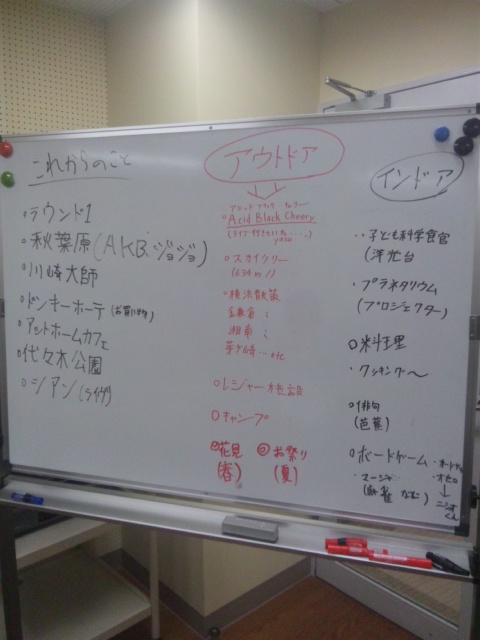 これからのこと
○ラウンド1
○秋葉原(AKB.ジョジョ)
○川崎大師
○ドンキーホーテ(お買い物)
○アットホームカフェ
○代々木公園
○シアン(ライヴ)
アウトドア
アシッド ブラック チェリー
○Acid Black Cherry
(ライブ 行きたいな……yasu
○スカイツリー
(634m!)
○横浜散策
鎌倉
湘南
茅ヶ崎…etc
○レジャー施設
○キャンプ
◎花見 ◎お祭り
(春) (夏)
インドア
・子ども科学食官
(洋光台
・プラネタリウム
(プロジェクター)
○料理
・クッキング〜
○俳句
(芭蕉)
○ボードゲーム
・オセロ
↓
くん